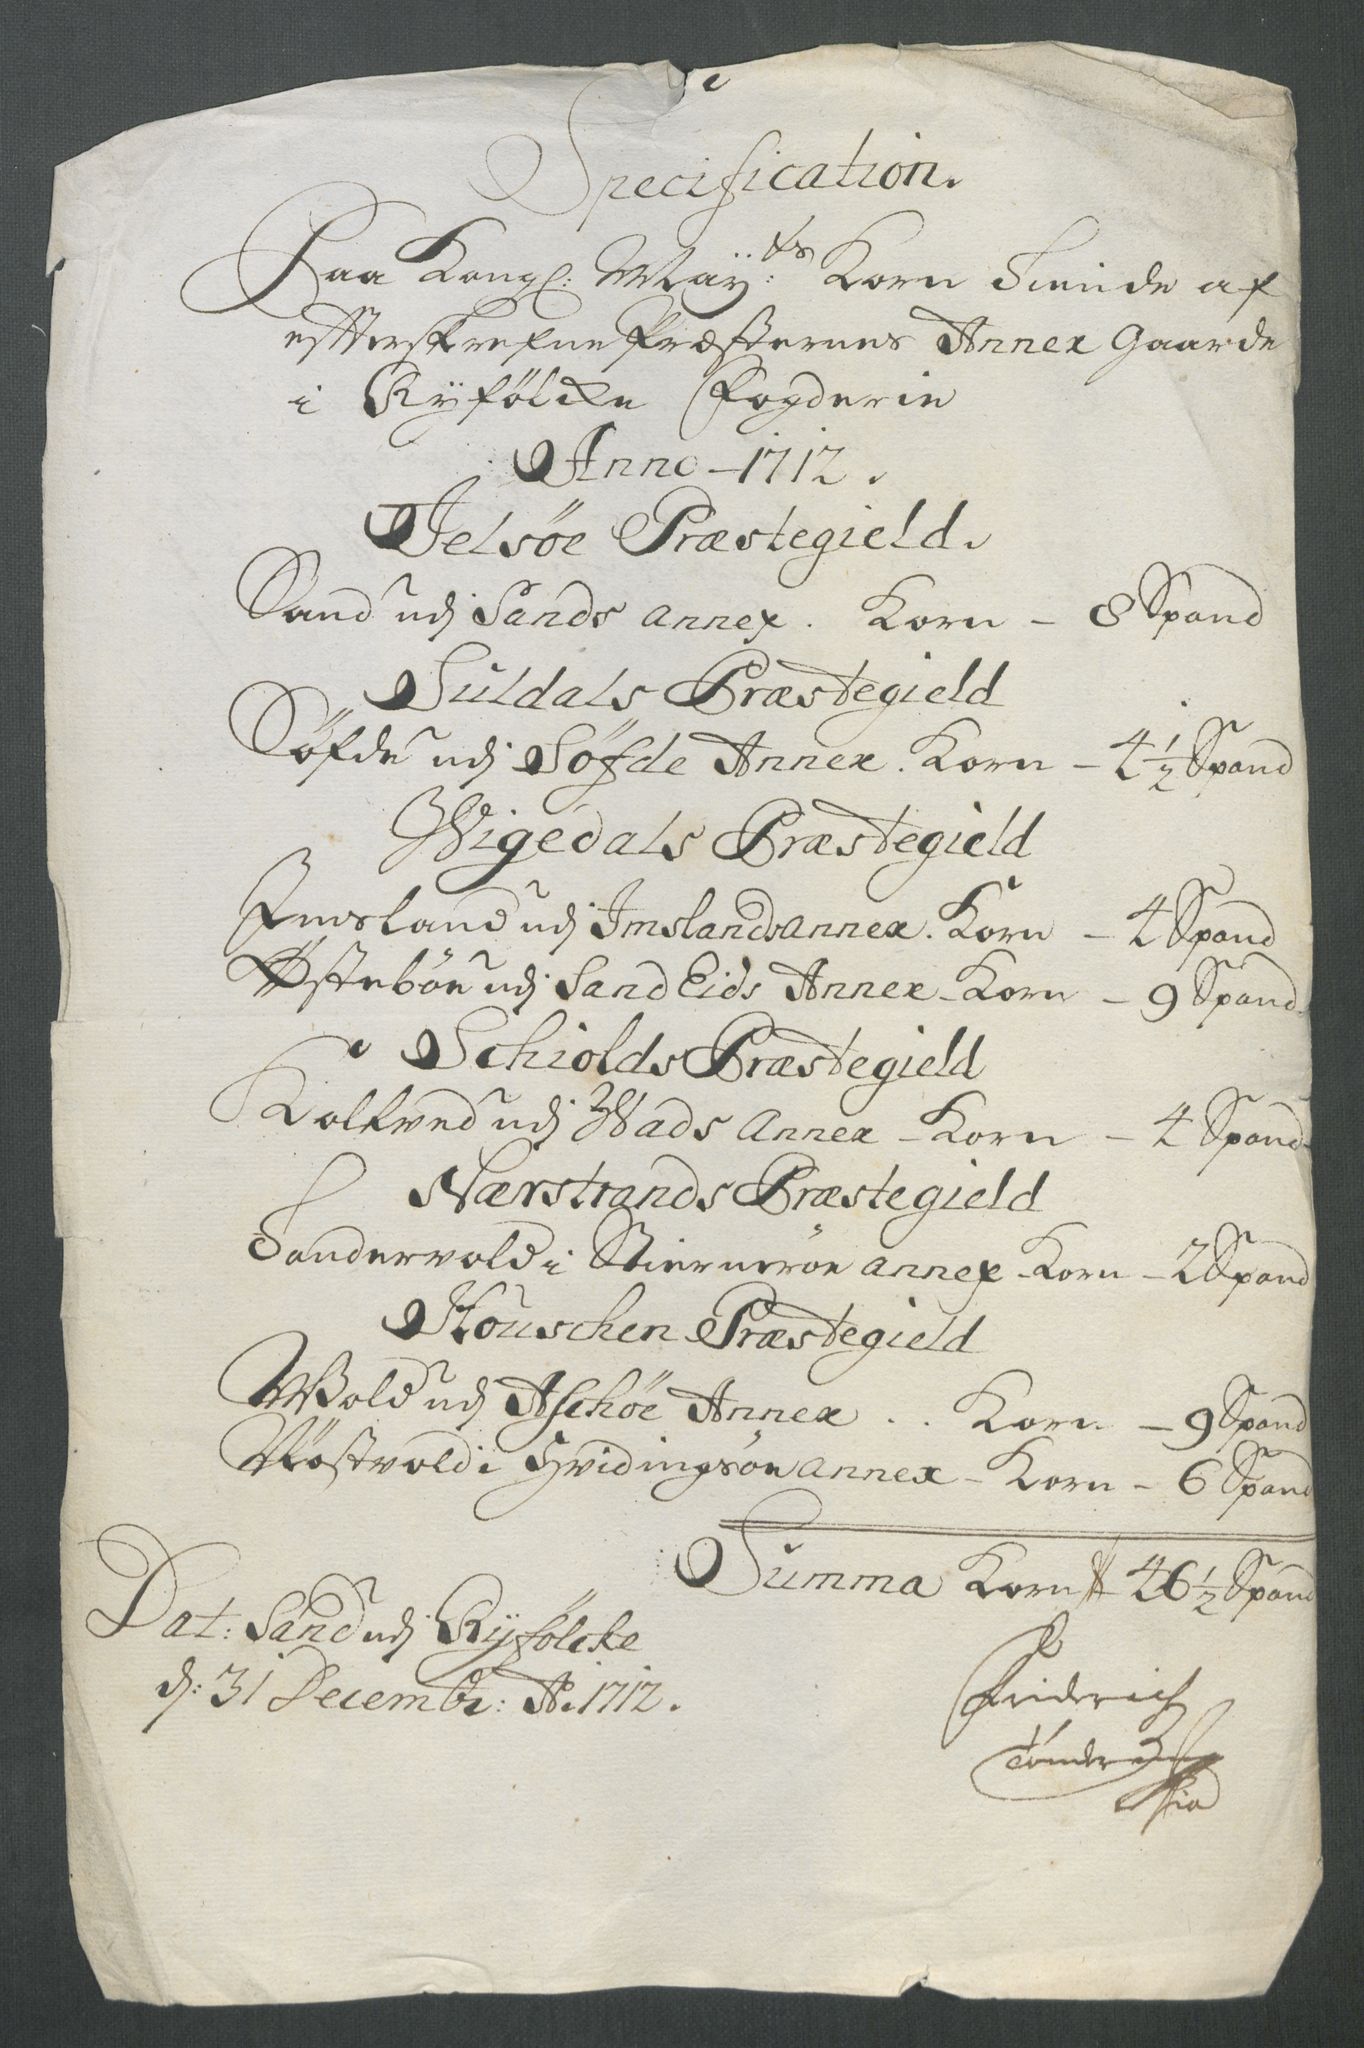 Specification.
Paa Kongl: Maÿ:ts Korn Tiende af
effterskrefne Præsternes Annex Gaarde
i Ryfölcke Fogderie
Anno 1712.
Jelsöe Præstegield.
Sand udj Sands Annex. Korn - 8 Spand
Suldals Præstegield
Söfde udj Söfde Annex. Korn - 4 1/2 Spand
Wigedals Præstegield
Imsland udj Imslands Annex. Korn - 4 Spand
Østeböe udj Sand Eids Annex - Korn - 9 Spand
Schiolds Præstegield
Kolkved udj Wads Annex - Korn - 4 Spand
Nærstrands Præstegield
Tandervold i Stierneröe Annex - Korn - 2 Spand
Houschen Præstegield
Wold udj Aschöe Annex .. Korn - 9 Spand
Röstvold i Hvidingsöe Annex - Korn - 6 Spand
Summa Korn 46 1/2 Spand
Dat: Sand udj Ryfölcke
d: 31 Decembr: Ao 1712.
Friderich
Tönder